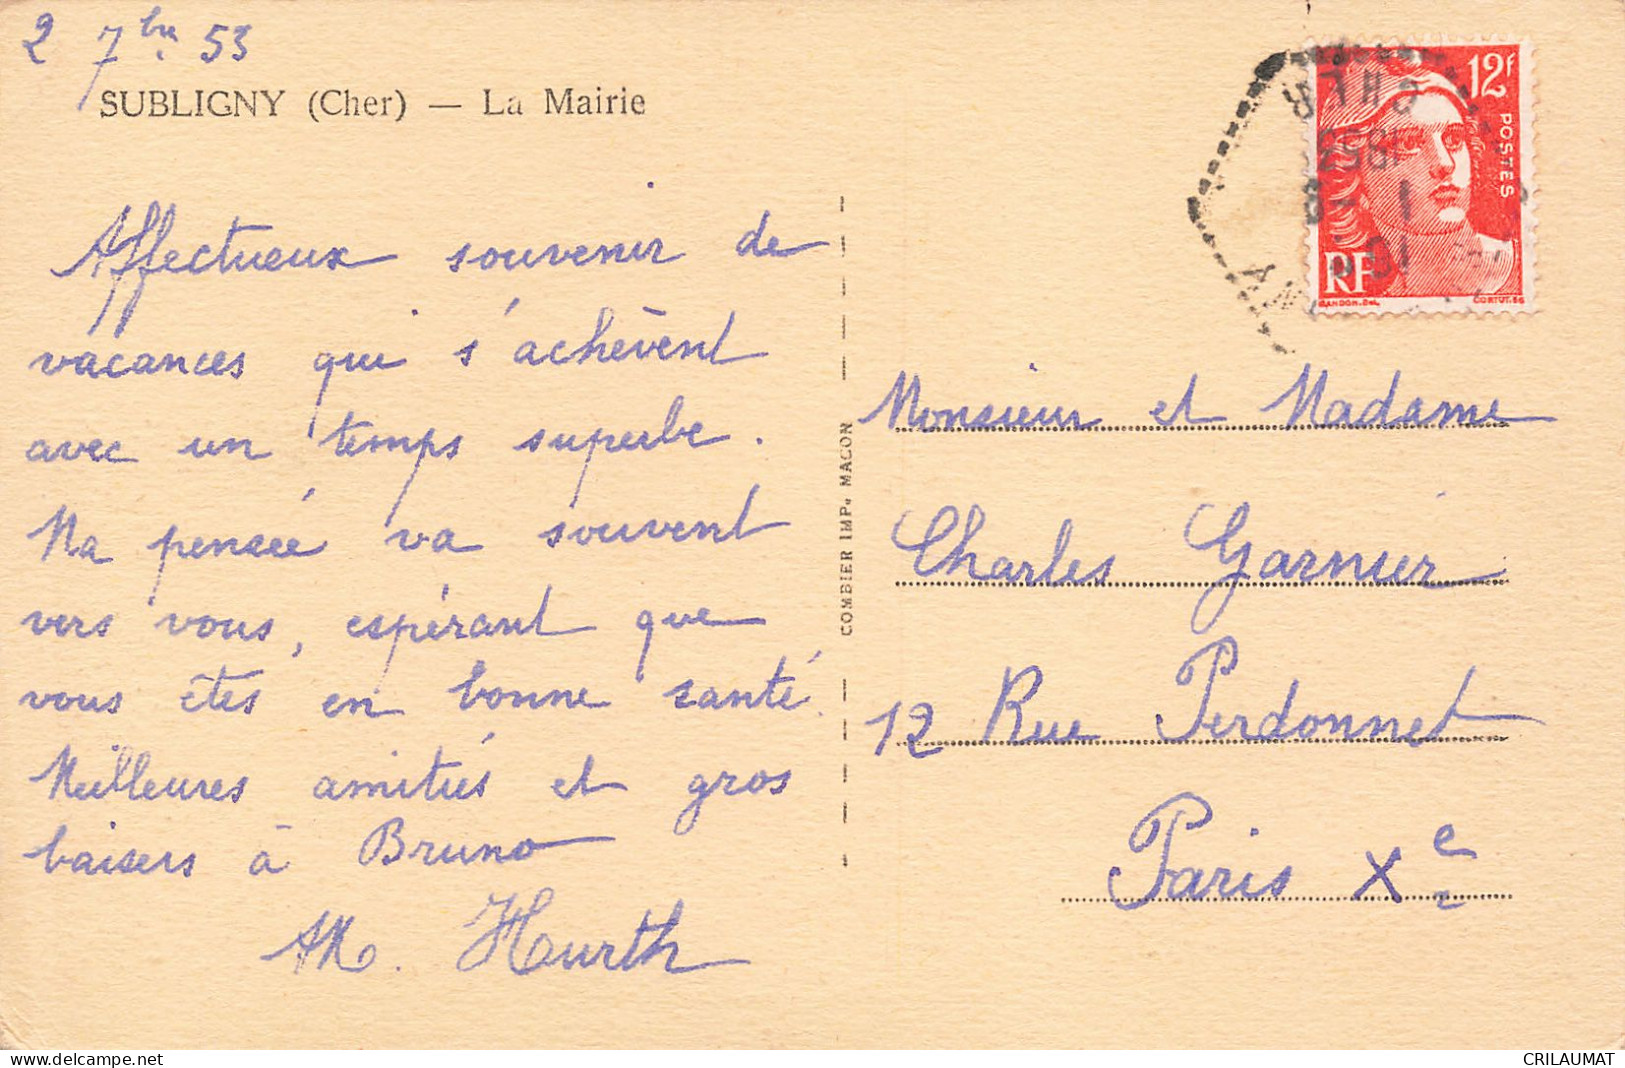 2 7bre 53
SUBLIGNY (Cher) — La Mairie
Affectueux souvenir de
vacances qui s'achèvent
avec un temps superbe.
Ma pensée va souvent
vers vous, espérant que
vous êtes en bonne santé.
Meilleures amitiés et gros
baisers à Bruno
COMBIER IMP. MACON
12f
POSTES
RF
GANDON.Del.
CORTOT.SC
CHER
1953
Monsieur et Madame
Charles Garnier
12 Rue Perdonnet
Paris Xe
delcampe.net
CRILAUMAT